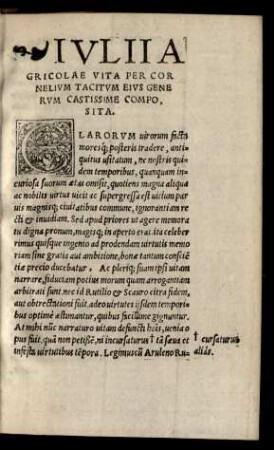 IVLII A
GRICOLAE VITA PER COR
NELIVM TACITVM EIVS GENE
RVM CASTISSIME COMPO,
SITA.
CLARORVM uirorum facta
moresq; posteris tradere, anti,
quitus usitatum, ne nostris qui
dem temporibus, quanquam in
curiosa suorum ætas omisit, quotiens magna aliqua
ac nobilis uirtus uicit ac supergressa est uitium par
uis magnisq; ciuitatibus commune, ignorantiam re
cti & inuidiam. Sed apud priores ut agere memora
tu digna pronum, magisq; in aperto erat ita celeber
rimus quisque ingenio ad prodendam uirtutis memo
riam sine gratia aut ambitione, bonæ tantum conscien
tiæ precio ducebatur. Ac pleriq; suam ipsi uitam
narrare, fiduciam potius morum quam arrogantiam
arbitrati sunt nec id Rutilio & Scauro citra fidem,
aut obtrectationi fuit. adeo uirtutes ijsdem tempori
bus optimè æstimantur, quibus facillime gignuntur.
At mihi nūc narraturo uitam defuncti hoīs, uenia o
pus fuit. quā non petissē, ni incursaturus † tā sæua et
infesta uirtutibus tēpora. Legimus cū Aruleno Ru-
† cursaturus
aliâs.